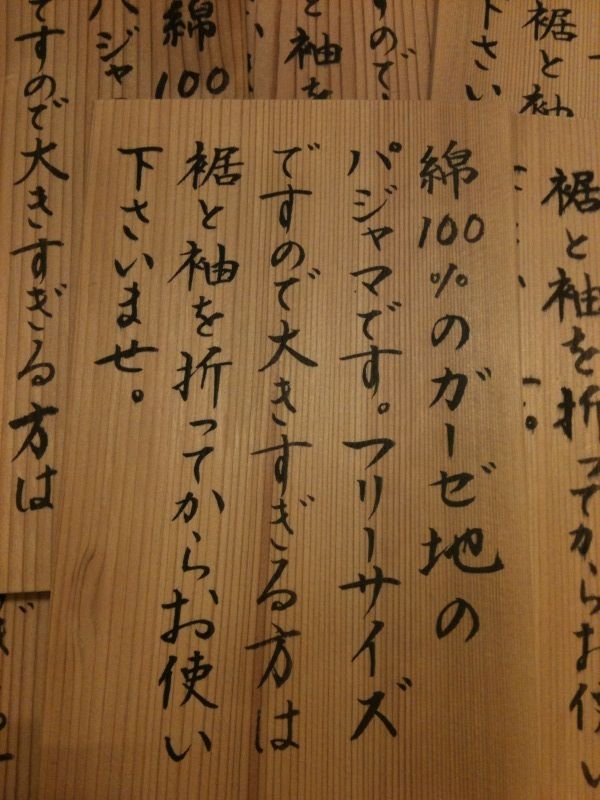 綿100%のガーゼ地の
パジャマです。フリーサイズ
ですので大きすぎる方は
裾と袖を折ってからお使い
下さいませ。
裾と袖を折ってからお使い
裾と袖
下さい
すので
と袖を
綿100
パジャ
ですので大きすぎる方は